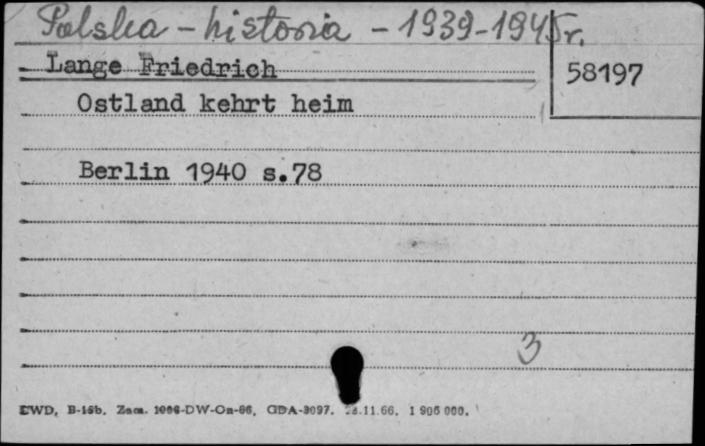 Polska - historia - 1939-1945r.
Lange Friedrich
58197
Ostland kehrt heim
Berlin 1940 s.78
3
DWD, B-15b. Zam. DW-On-66, GDA-3097. 11.66. 1 906 000.